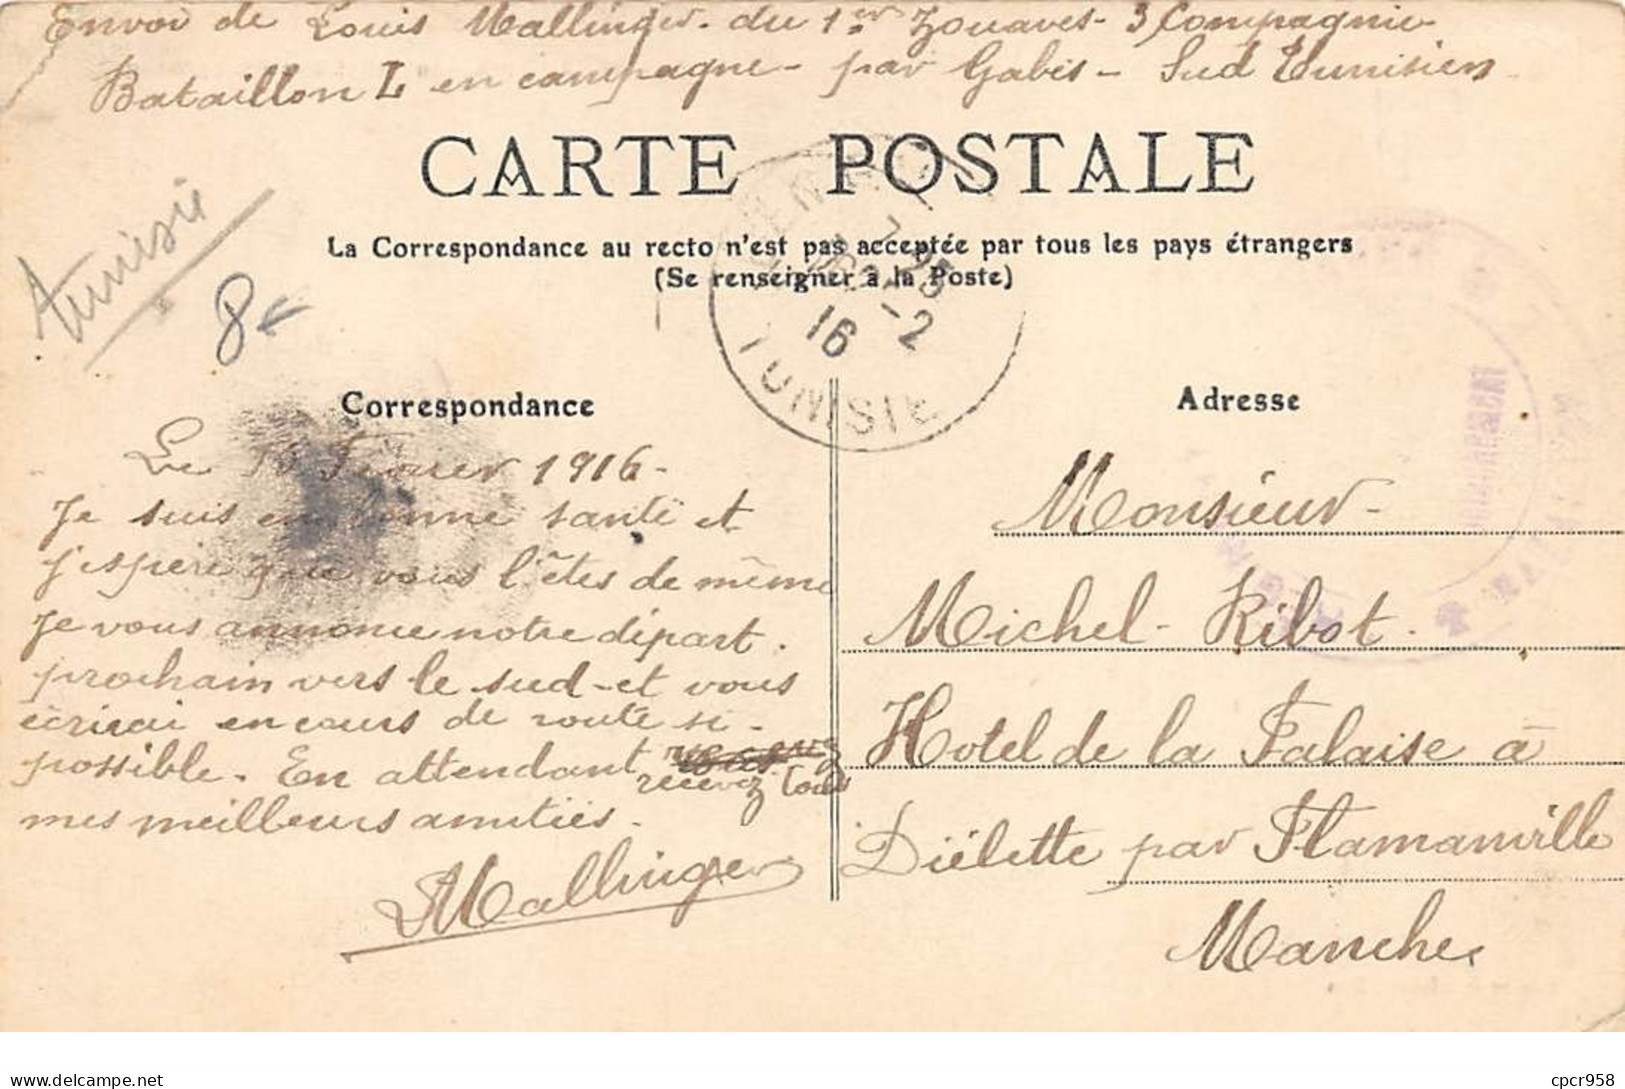 Envoi de Louis Mallinger - du 1er Zouaves - 3 Compagnie
Bataillon L en campagne - par Gabès - Sud Tunisien
CARTE POSTALE
La Correspondance au recto n'est pas acceptée par tous les pays étrangers
(Se renseigner à la Poste)
Tunisie
8€
16 -2
TUNISIE
Correspondance
Le Février 1916 -
Je suis en bonne santé et
j'espère que vous l'êtes de même
Je vous annonce notre départ.
prochain vers le sud - et vous
écrirai en cours de route si -
possible. En attendant
recevez tous
mes meilleurs amitiés.
Mallinger
Adresse
Monsieur -
Michel - Ribot.
Hotel de la Falaise à
Diélette par Flamanville
Manche
cpcr958